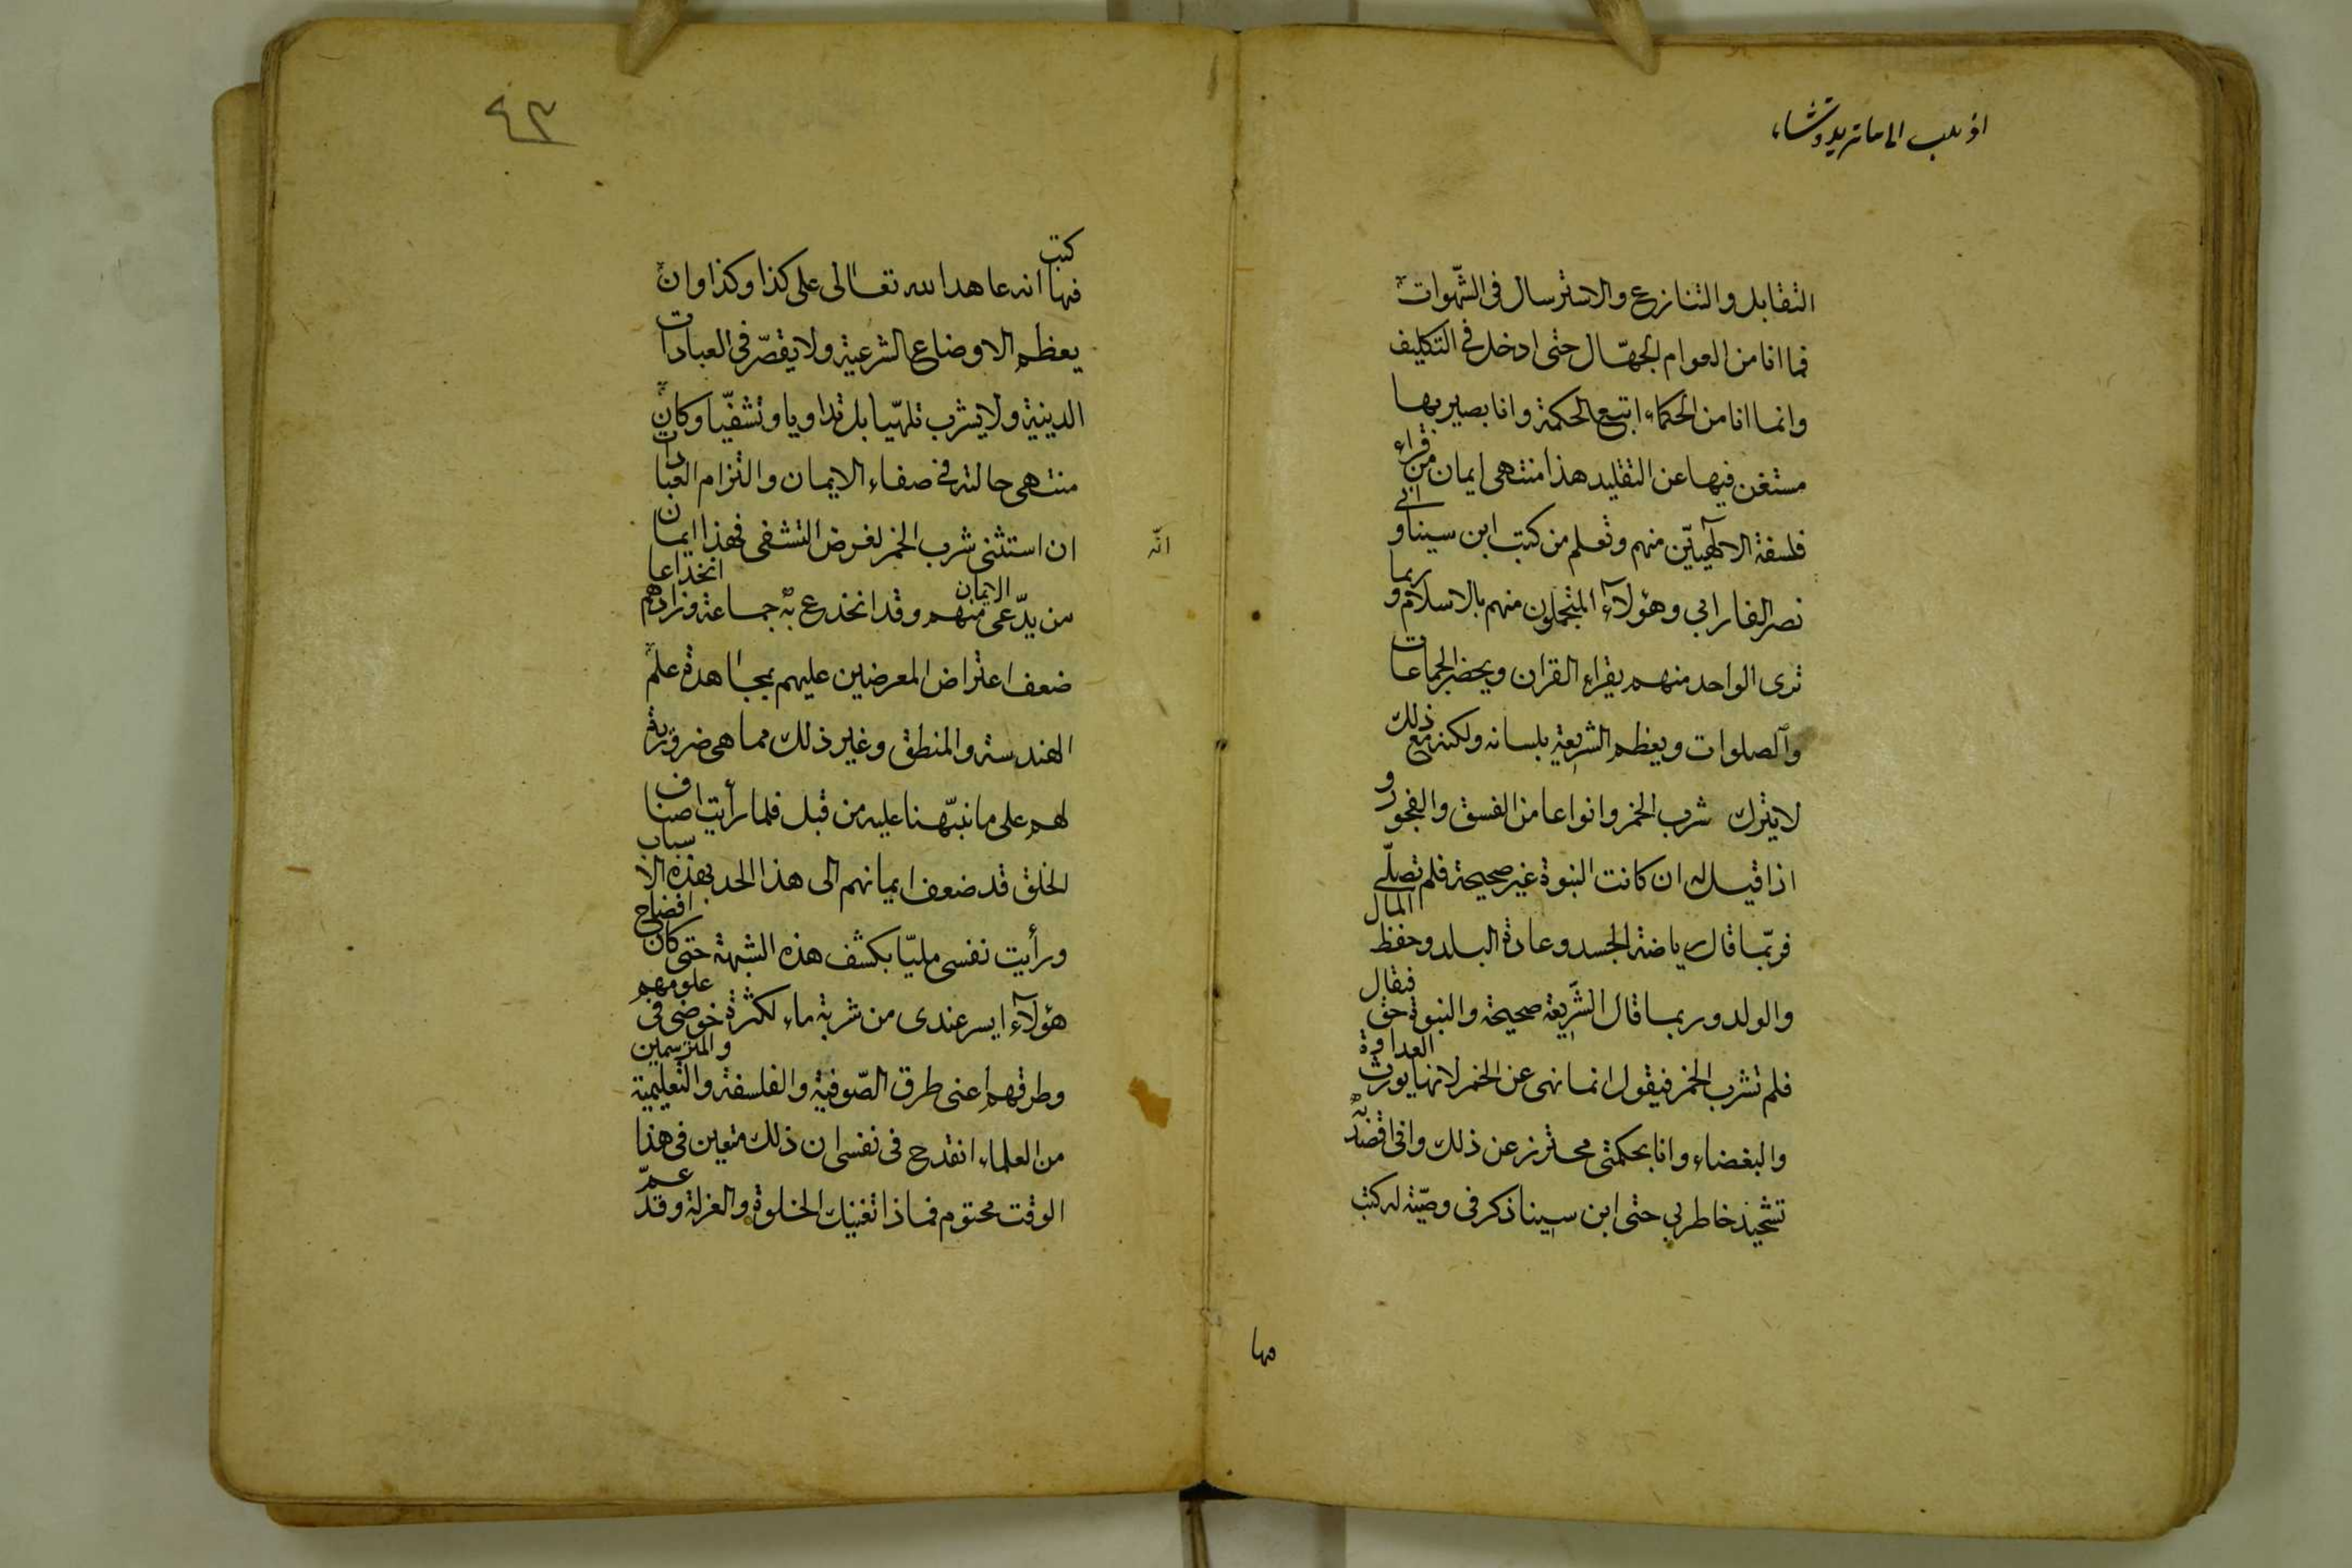 التقابل والتنازع والاسترسال فى الشهوات
فما انا من العوام الجهّال حتى ادخل فى التكليف
وانما انا من الحكماء اتبع الحكمة وانا بصير بها
مستغن فيها عن التقليد هذا منتهى ايمان من قراء
فلسفة الالٰهيّين منهم وتعلم من كتب ابن سينا وابى
نصر الفارابى وهؤلآء المتجملون منهم بالاسلام وربما
ترى الواحد منهم يقراء القران ويحضر الجماعات
والصلوات ويعظم الشريعة بلسانه ولكنه مع ذلك
لا يترك شرب الخمر وانواعا من الفسق والفجور و
اذا قيل له ان كانت النبوة غير صحيحة فلم تصلّى
فربّما قال رياضة الجسد وعادة البلد وحفظ المال
والولد وربما قال الشّريعة صحيحة والنبوة حق فيقال
فلم تشرب الخمر فيقول انما نهى عن الخمر لانها يورث العداوة
والبغضاء وانا بحكمتى محترز عن ذلك وانى اقصد به
تشحيذ خاطرى حتى ابن سينا ذكر فى وصيّته له كتب
فيها
٤٣
فيها كتب انه عاهد الله تعالى على كذا وكذا وان
يعظم الاوضاع الشرعية ولا يقصّر فى العبادات
الدينية ولا يشرب تلهّيا بل تداويا وتشفّيا وكان
منتهى حالته فى صفاء الايمان والتزام العبادات
ان استثنى شرب الخمر لغرض التشفى فهذا ايمان
انّه
من يدّعى الايمان منهم وقد انخدع به جماعة وزادهم انخداعا
ضعف اعتراض المعرضين عليهم بمجاهدة علم
الهندسة والمنطق وغير ذلك مما هى ضرورية
لهم على ما نبّهنا عليه من قبل فلما رأيت اصناف
الخلق قد ضعف ايمانهم الى هذا الحد بهذه الاسباب
ورأيت نفسى مليّا بكشف هذه الشبهة حتى كان افضاح
هؤلآء ايسر عندى من شربة ماء لكثرة خوضى فى علومهم
وطرقهم اعنى طرق الصّوفية والفلسفة والتعليمية والمترسمين
من العلماء انقدح فى نفسى ان ذلك متعين فى هذا
الوقت محتوم فماذا تغنيك الخلوة والعزلة وقد عمّ